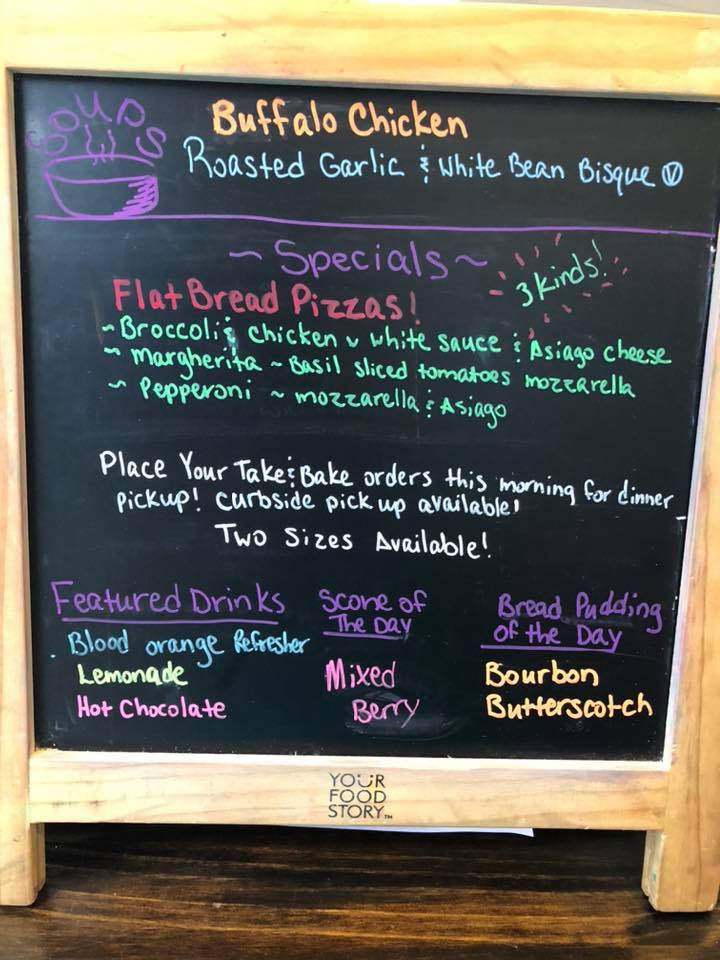 SOUPS
Buffalo Chicken
Roasted Garlic & White Bean Bisque Ⓥ
~ Specials ~
3 kinds!
Flat Bread Pizzas!
~ Broccoli & chicken v white sauce & Asiago cheese
~ margherita ~ Basil sliced tomatoes mozzarella
~ Pepperoni ~ mozzarella & Asiago
Place Your Take & Bake orders this morning for dinner
pickup! Curbside pick up available!
Two Sizes Available!
Featured Drinks
Blood orange Refresher
Lemonade
Hot Chocolate
Scone of
The Day
Mixed
Berry
Bread Pudding
of the Day
Bourbon
Butterscotch
YOUR
FOOD
STORY™